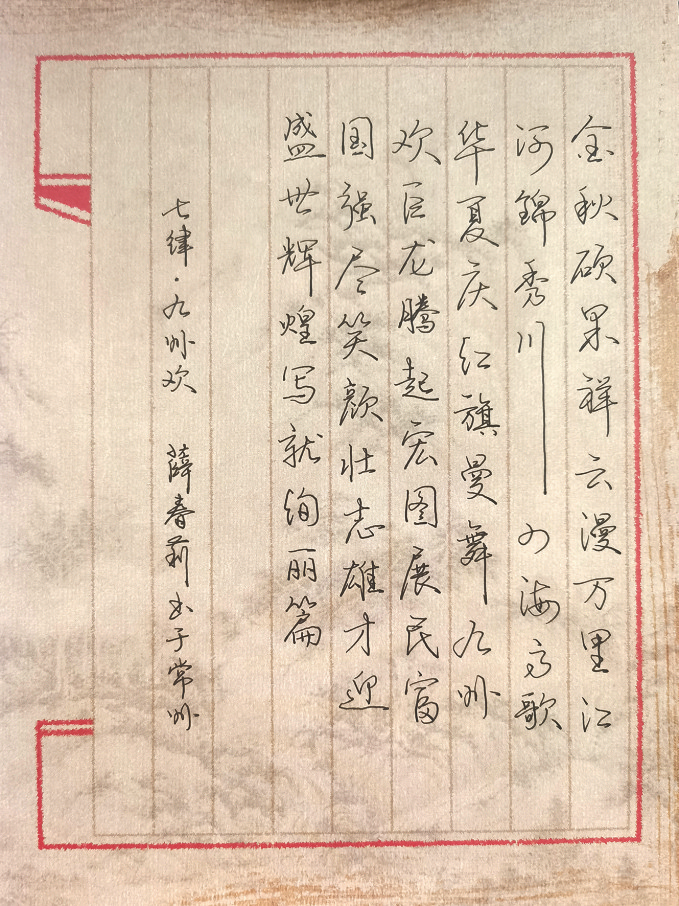 金秋硕果祥云漫万里江
河錦秀川四海高歌
华夏庆红旗曼舞九州
欢巨龙腾起宏图展民富
国强尽笑颜壮志雄才迎
盛世辉煌写就绚丽篇
七律·九州欢 薛春莉书于常州